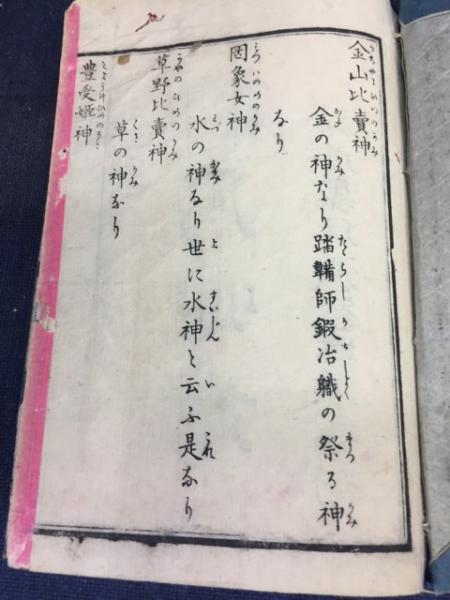 金山比賣神
金の神なり踏鞴師鍜冶職の祭る神
なり
罔象女神
水の神なり世に水神と云ふ是なり
草野比賣神
草の神なり
豊受姫神